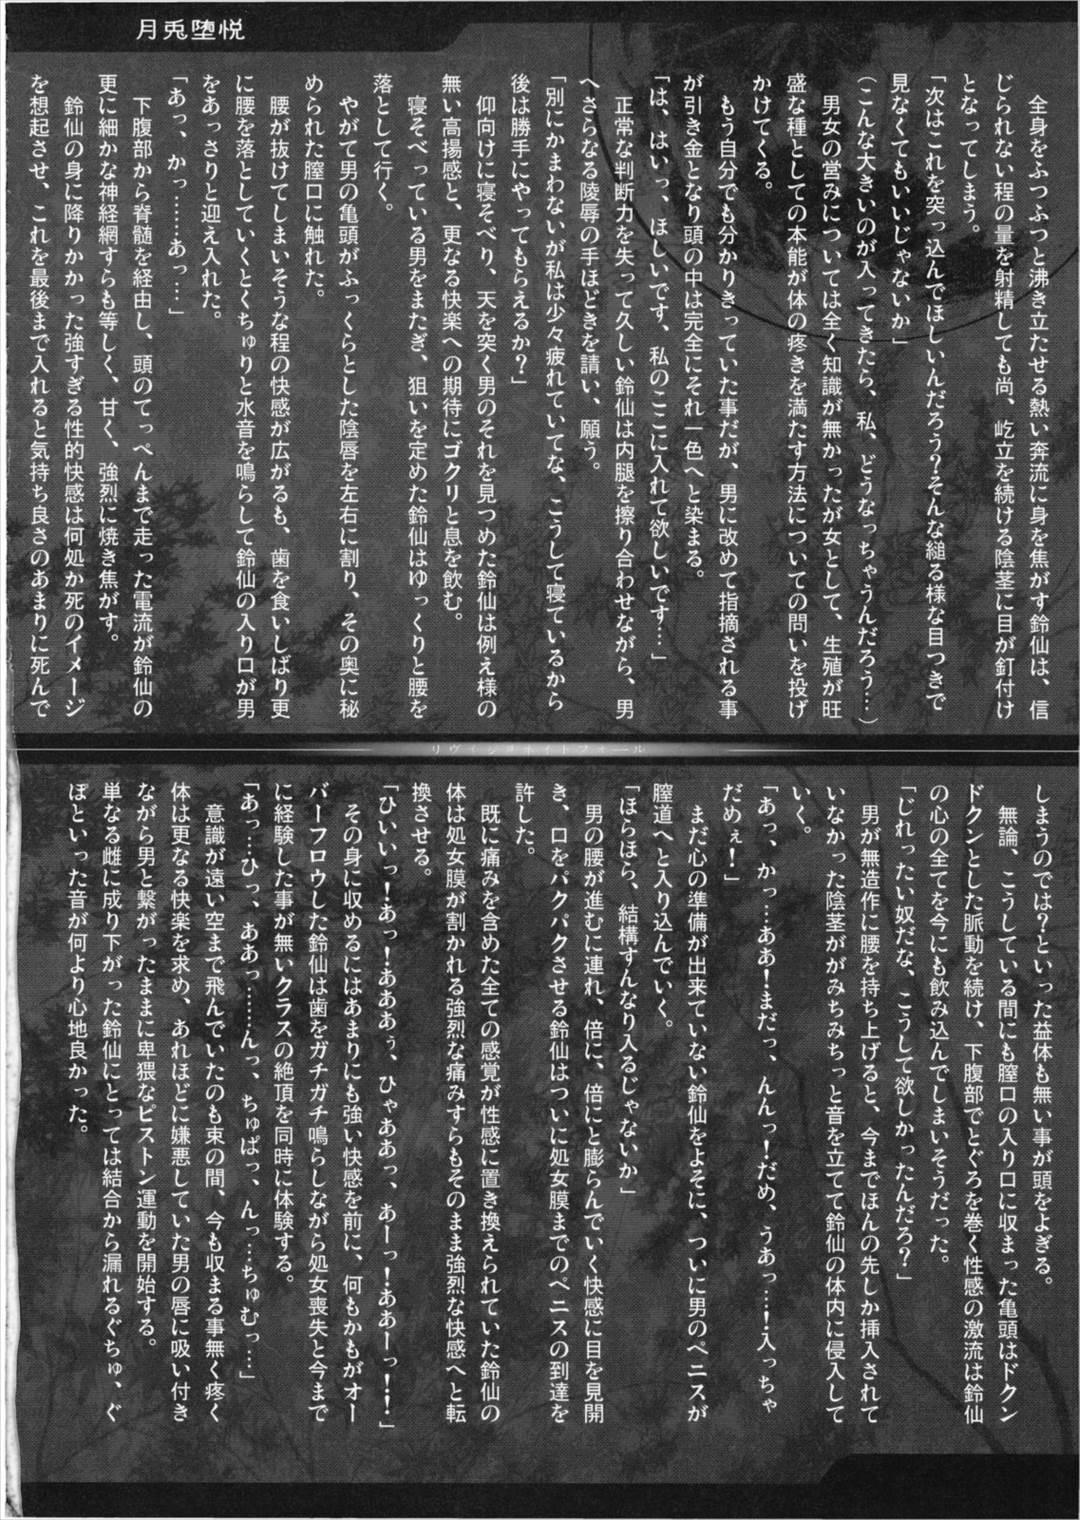 月兎堕悦
全身をふつふつと沸き立たせる熱い奔流に身を焦がす鈴仙は、信
じられない程の量を射精しても尚、屹立を続ける陰茎に目が釘付け
となってしまう。
「次はこれを突っ込んでほしいんだろう?そんな縋る様な目つきで
見なくてもいいじゃないか」
(こんな大きいのが入ってきたら、私、どうなっちゃうんだろう…)
男女の営みについては全く知識が無かったが女として、生殖が旺
盛な種としての本能が体の疼きを満たす方法についての問いを投げ
かけてくる。
もう自分でも分かりきっていた事だが、男に改めて指摘される事
が引き金となり頭の中は完全にそれ一色へと染まる。
「は、はいっ、ほしいです、私のここに入れて欲しいです…」
正常な判断力を失って久しい鈴仙は内腿を擦り合わせながら、男
へさらなる陵辱の手ほどきを請い、願う。
「別にかまわないが私は少々疲れていてな、こうして寝ているから
後は勝手にやってもらえるか?」
仰向けに寝そべり、天を突く男のそれを見つめた鈴仙は例え様の
無い高揚感と、更なる快楽への期待にゴクリと息を飲む。
寝そべっている男をまたぎ、狙いを定めた鈴仙はゆっくりと腰を
落として行く。
やがて男の亀頭がふっくらとした陰唇を左右に割り、その奥に秘
められた膣口に触れた。
腰が抜けてしまいそうな程の快感が広がるも、歯を食いしばり更
に腰を落としていくとくちゅりと水音を鳴らして鈴仙の入り口が男
をあっさりと迎え入れた。
「あっ、かっ……あっ…」
下腹部から脊髄を経由し、頭のてっぺんまで走った電流が鈴仙の
更に細かな神経網すらも等しく、甘く、強烈に焼き焦がす。
鈴仙の身に降りかかった強すぎる性的快感は何処か死のイメージ
を想起させ、これを最後まで入れると気持ち良さのあまりに死んで
しまうのでは?といった益体も無い事が頭をよぎる。
無論、こうしている間にも膣口の入り口に収まった亀頭はドクン
ドクンとした脈動を続け、下腹部でとぐろを巻く性感の激流は鈴仙
の心の全てを今にも飲み込んでしまいそうだった。
「じれったい奴だな、こうして欲しかったんだろ?」
男が無造作に腰を持ち上げると、今までほんの先しか挿入されて
いなかった陰茎ががみちみちっと音を立てて鈴仙の体内に侵入して
いく。
「あっ、かっ…ああ!まだっ、んんっ!だめ、うあっ…!入っちゃ
だめぇ!」
まだ心の準備が出来ていない鈴仙をよそに、ついに男のペニスが
膣道へと入り込んでいく。
「ほらほら、結構すんなり入るじゃないか」
男の腰が進むに連れ、倍に、倍にと膨らんでいく快感に目を見開
き、口をパクパクさせる鈴仙はついに処女膜までのペニスの到達を
許した。
既に痛みを含めた全ての感覚が性感に置き換えられていた鈴仙の
体は処女膜が割かれる強烈な痛みすらもそのまま強烈な快感へと転
換させる。
「ひいいっ!あっ!あああぅ、ひゃああっ、あーっ!ああーっ!!」
その身に収めるにはあまりにも強い快感を前に、何もかもがオー
バーフロウした鈴仙は歯をガチガチ鳴らしながら処女喪失と今まで
に経験した事が無いクラスの絶頂を同時に体験する。
「あっ…ひっ、ああっ……んっ、ちゅぱっ、んっ…ちゅむっ…」
意識が遠い空まで飛んでいたのも束の間、今も収まる事無く疼く
体は更なる快楽を求め、あれほどに嫌悪していた男の唇に吸い付き
ながら男と繋がったままに卑猥なピストン運動を開始する。
単なる雌に成り下がった鈴仙にとっては結合から漏れるぐちゅ、ぐ
ぽといった音が何より心地良かった。